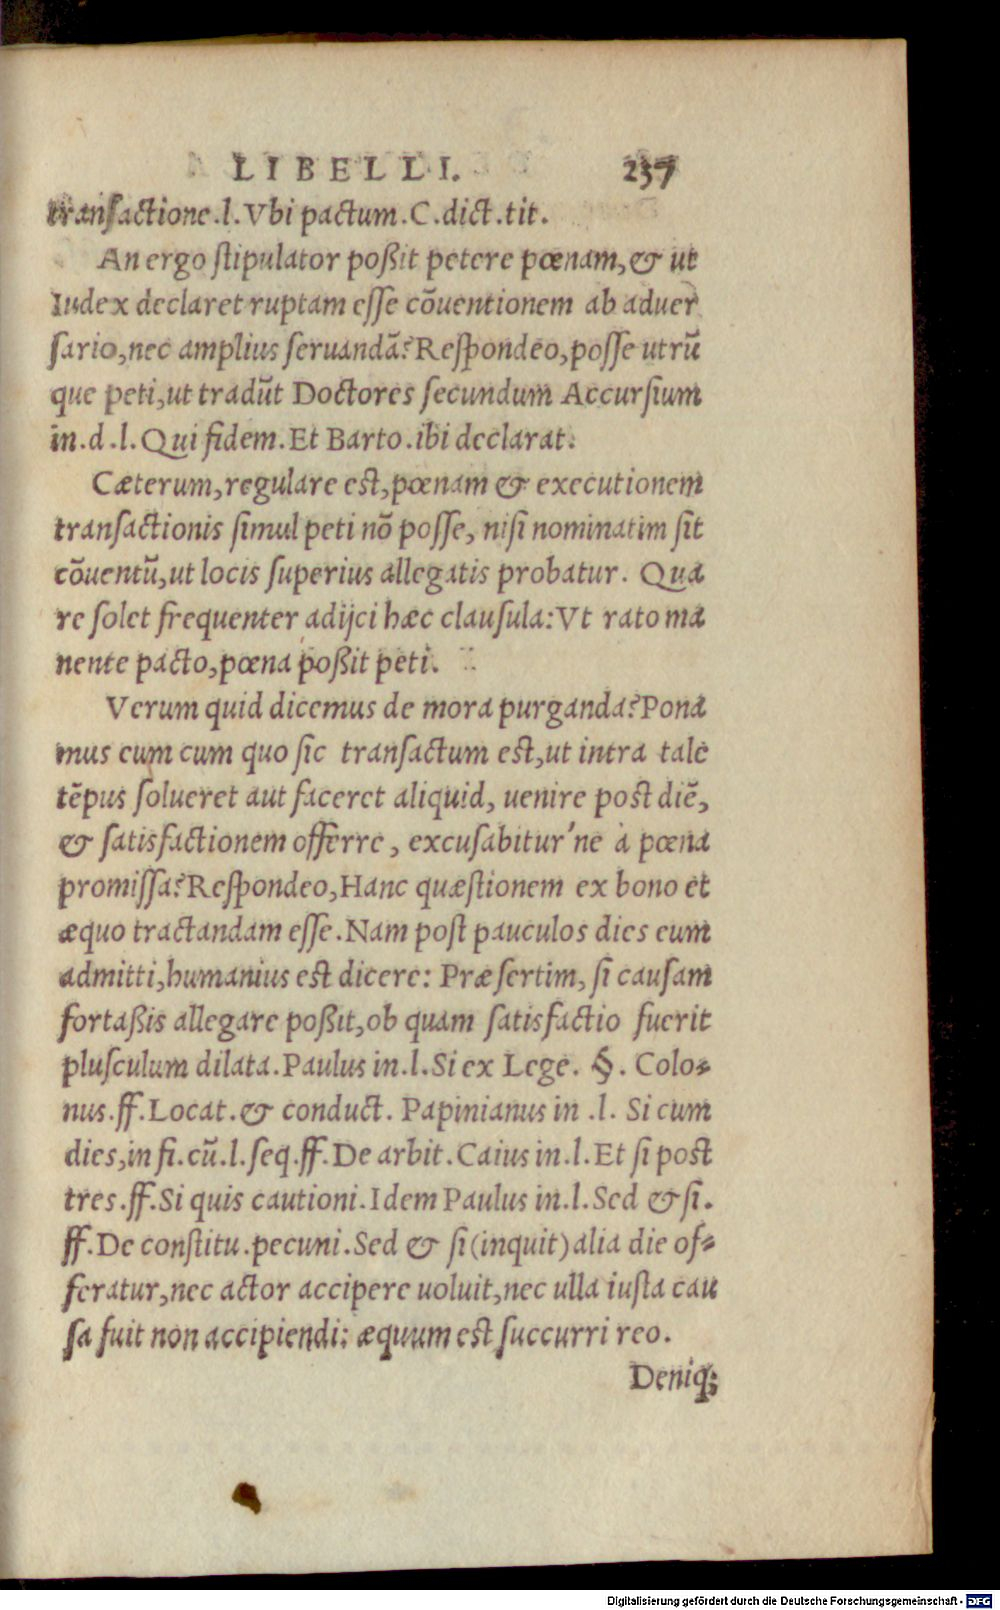 LIBELLI. 237
transactione.l.Vbi pactum.C.dict.tit.
An ergo stipulator poßit petere pœnam,& ut
Iudex declaret ruptam esse cõuentionem ab aduer
sario,nec amplius seruandã?Respondeo,posse utrũ
que peti,ut tradũt Doctores secundum Accursium
in.d.l.Qui fidem.Et Barto.ibi declarat.
Cæterum,regulare est,pœnam & executionem
transactionis simul peti nõ posse, nisi nominatim sit
cõuentũ,ut locis superius allegatis probatur. Qua
re solet frequenter adijci hæc clausula:Vt rato ma
nente pacto,pœna poßit peti.
Verum quid dicemus de mora purganda?Pona
mus eum cum quo sic transactum est,ut intra tale
tẽpus solueret aut faceret aliquid, uenire post diẽ,
& satisfactionem offerre, excusabitur'ne à pœna
promissa?Respondeo,Hanc quæstionem ex bono et
æquo tractandam esse.Nam post pauculos dies eum
admitti,humanius est dicere: Præsertim, si causam
fortaßis allegare poßit,ob quam satisfactio fuerit
plusculum dilata.Paulus in.l.Si ex Lege. §. Colo-
nus.ff.Locat.& conduct. Papinianus in .l. Si cum
dies,in fi.cũ.l.seq.ff.De arbit.Caius in.l.Et si post
tres.ff.Si quis cautioni.Idem Paulus in.l.Sed & si.
ff.De constitu.pecuni.Sed & si(inquit)alia die of-
feratur,nec actor accipere uoluit,nec ulla iusta cau
sa fuit non accipiendi: æquum est succurri reo.
Deniq;
Digitalisierung gefördert durch die Deutsche Forschungsgemeinschaft - DFG